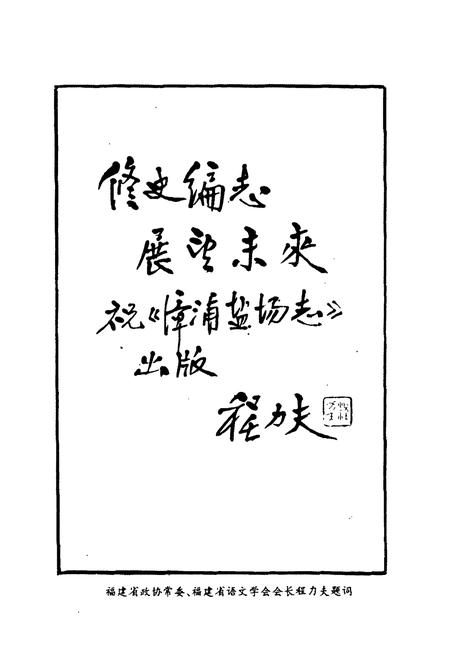 修史编志
展望未来
祝《漳浦盐场志》
出版
程力夫
福建省政协常委、福建省语文学会会长程力夫题词